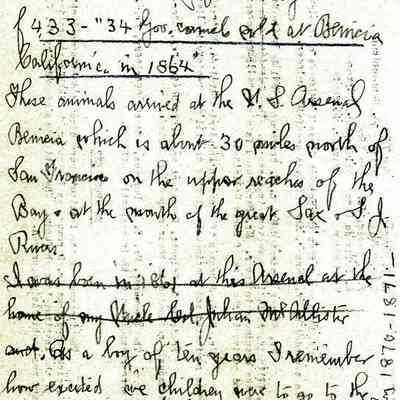 f 433 - "34 Gov. camels at Benecia
California in 1864"
These animals arrived at the U.S. Arsenal
Benecia which is about 30 miles north of
San Francisco on the upper reaches of the
Bay & at the mouth of the great Sac & S.J.
Rivers.
I was born in 1861 at this Arsenal at the
home of my Uncle Col. Julian McAllister
and, As a boy of ten years I remember
how excited we children were to go to the
1870-1871